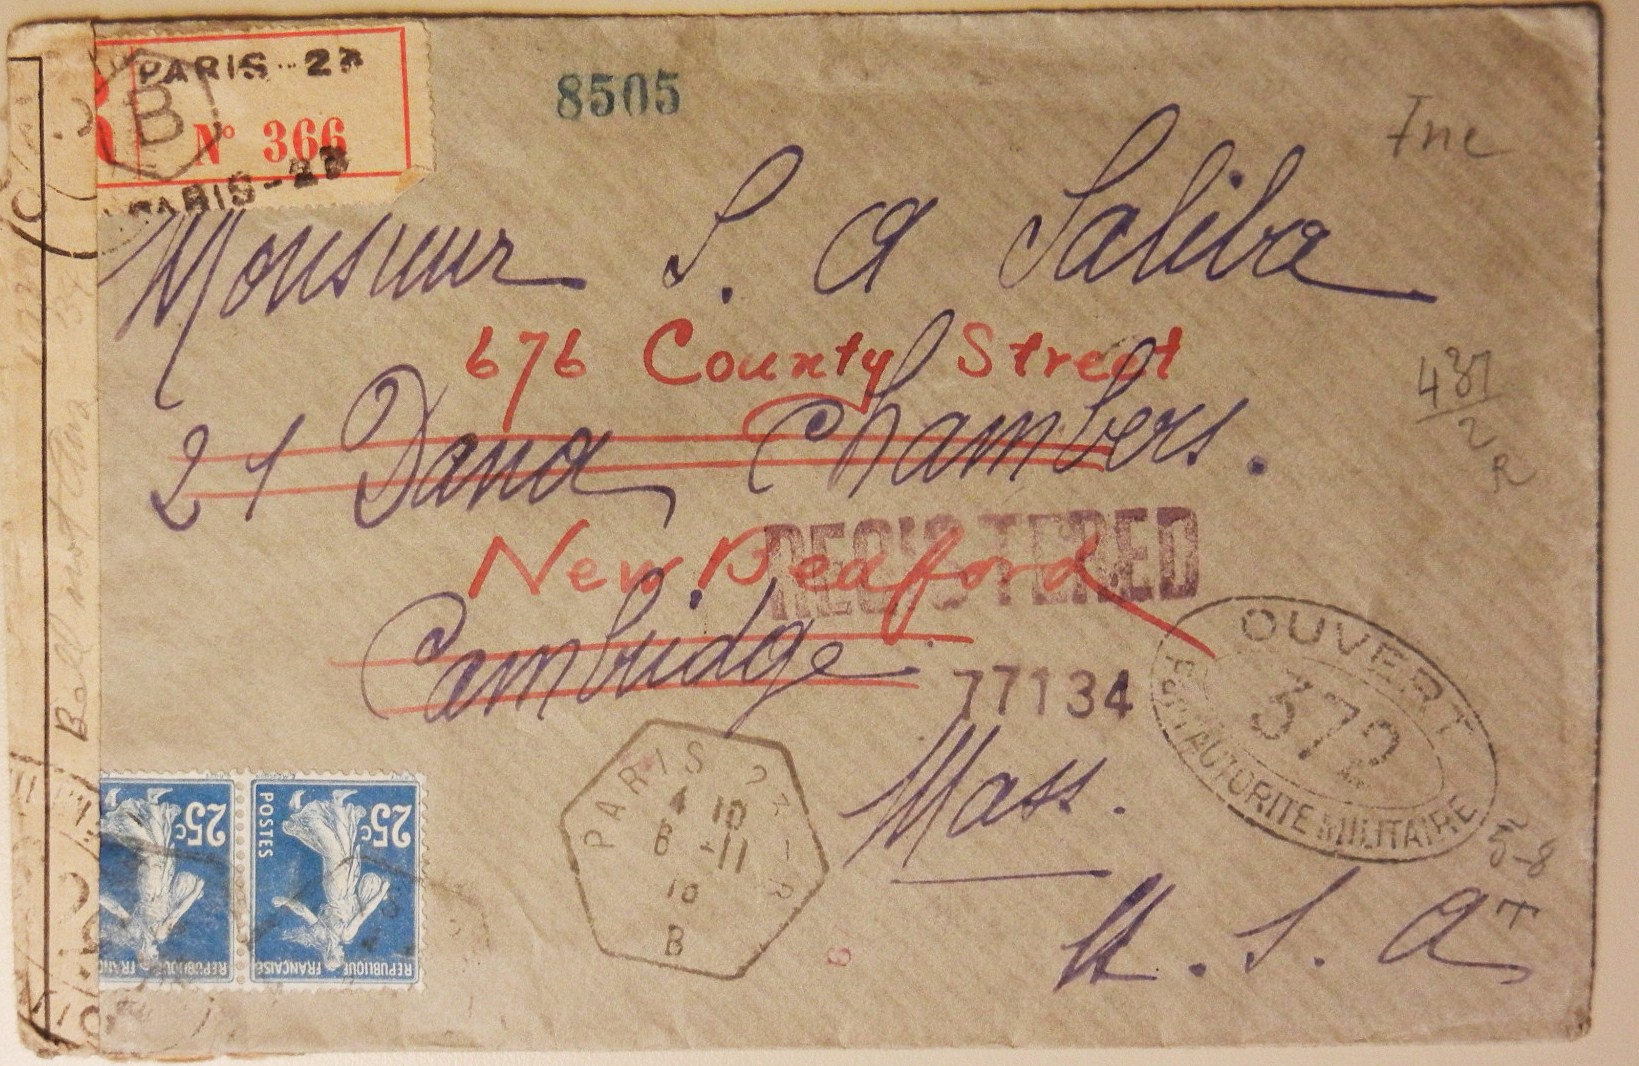 PARIS-27
B
N° 366
PARIS-27
8505
Fne
Monsieur S. A Saliba
676 County Street
21 Dana Chambers.
New Bedford
REGISTERED
Cambridge.
77134
Mass.
U. S. A
431
2
R
OUVERT
372
PAR AUTORITÉ MILITAIRE
5-8
7
PARIS 27 - R
4 10
B -11
18
B
9
25c
POSTES
25c
REPUBLIQUE FRANÇAISE
REPUBLIQUE FRAN